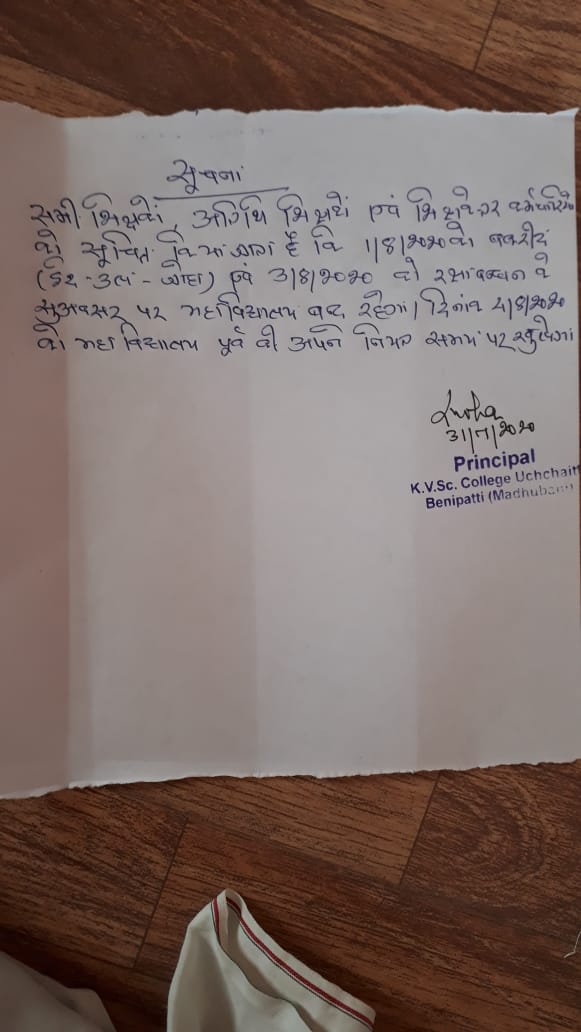 सूचना
सभी शिक्षकों, अतिथि शिक्षकों एवं शिक्षकेत्तर कर्मचारियों
को सूचित किया जाता है कि 1/8/2020 को बकरीद
(ईद-उल-जोहा) एवं 3/8/2020 को रक्षाबन्धन के
सुअवसर पर महाविद्यालय बन्द रहेगा। दिनांक 4/8/2020
को महाविद्यालय पूर्व की अपने नियत समय पर खुलेगा
31/7/2020
Principal
K.V.Sc. College Uchchaith
Benipatti (Madhubani)